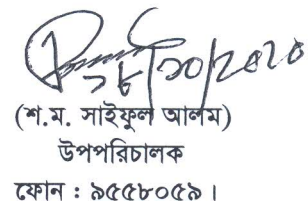 ১৮/১০/২০২০
(শ.ম. সাইফুল আলম)
উপপরিচালক
ফোন : ৯৫৫৮০৫৯।